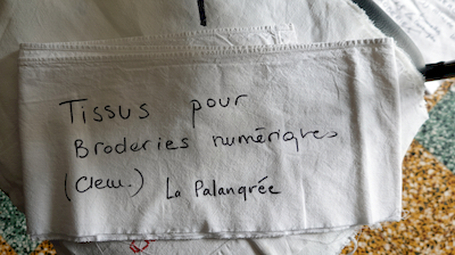 Tissus pour
Broderies numériques
(Clem.) La Palangrée